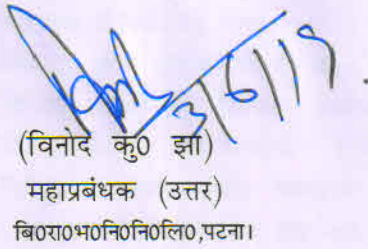 3/6/19
(विनोद कु0 झा)
महाप्रबंधक (उत्तर)
बि0रा0भ0नि0नि0लि0,पटना।